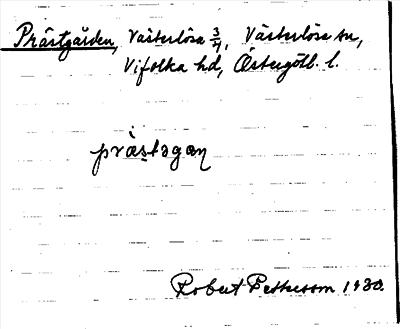 Prästgården, Västerlösa 3/4, Västerlösa sn,
Vifolka hd, Östergötl. l.
prästagan
Robert Pettersson 1930.